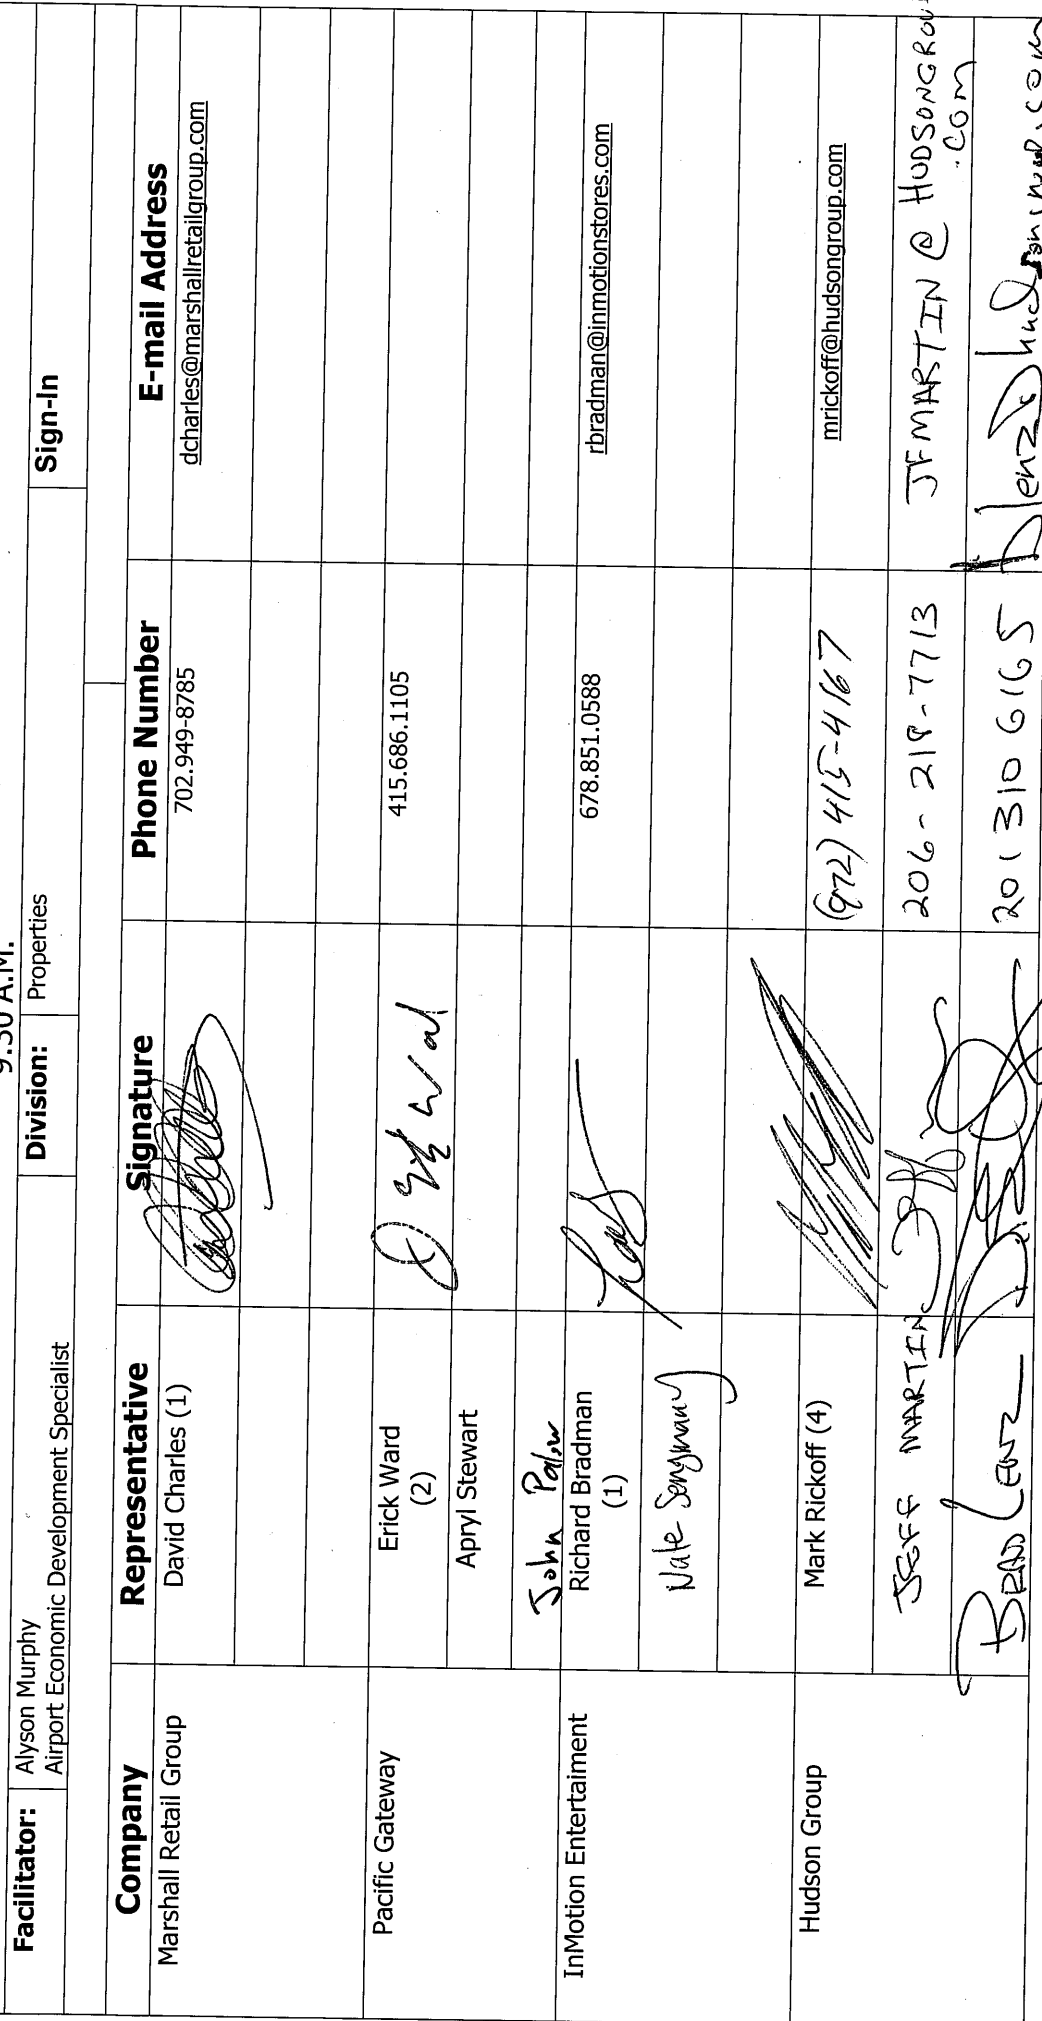 9:30 A.M.
Facilitator: Alyson Murphy
Airport Economic Development Specialist
Division: Properties
Sign-In
Company Representative Signature Phone Number E-mail Address
Marshall Retail Group David Charles (1) 702.949-8785 dcharles@marshallretailgroup.com
Pacific Gateway Erick Ward 415.686.1105
(2)
Apryl Stewart
John
InMotion Entertaiment Richard Bradman 678.851.0588 rbradman@inmotionstores.com
(1)
Nate
Hudson Group Mark Rickoff (4) (972) 415-4167 mrickoff@hudsongroup.com
JEFF MARTIN 206-218-7713 JFMARTIN @ HUDSONGROU
.COM
BRAD LENZ 201 310 6165